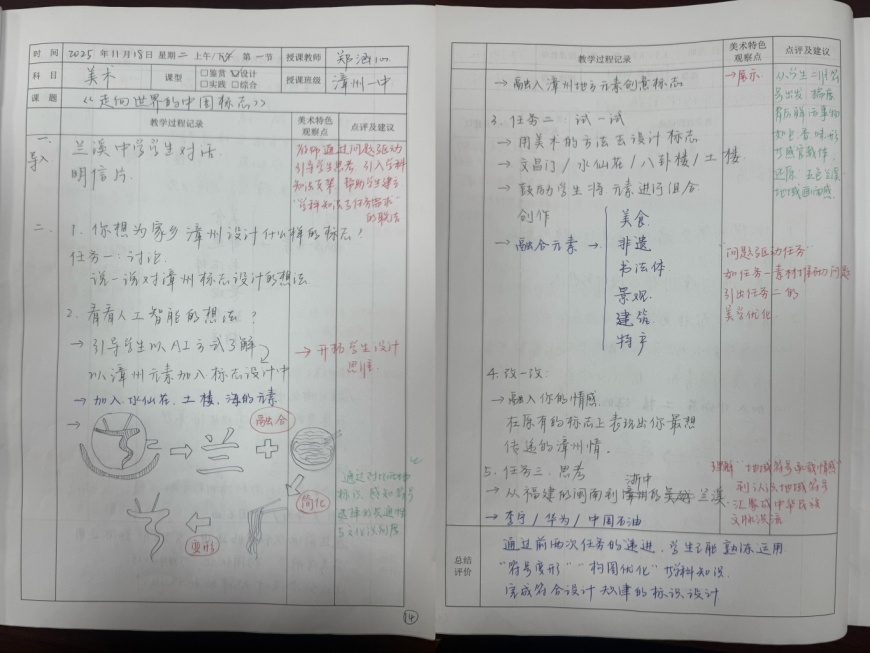 时 间 2025年11月18日 星期二 上午/下午 第一节 授课教师 郑涵
科 目 美术 课型 □鉴赏 ☑设计 □实践 □综合 授课班级 漳州一中
课 题 《走向世界的中国标志》
教学过程记录 美术特色观察点 点评及建议
一、导入
兰溪中学学生对话
明信片
教师通过问题驱动
引导学生思考,引入学科
知识支架,帮助学生建立
"学科知识与任务需求"
的联结
二、
1. 你想为家乡漳州设计什么样的标志?
任务一:讨论
说一说对漳州标志设计的想法
2. 看看人工智能的想法?
→ 引导学生以AI方式了解
以漳州元素加入标志设计中
→ 开拓学生设计
思维
→ 加入水仙花、土楼、海的元素
→
融合
兰
简化
变形
通过对比两地
标识,感知符号
选择的
与文化识别度
14
教学过程记录 美术特色观察点 点评及建议
→ 融入漳州地方元素创意标志
→展示
3. 任务二:试一试
→ 用美术的方法去设计标志
→ 文昌门/水仙花/八卦楼/土楼
→ 鼓励学生将元素进行组合
创作
→ 融合元素 →
美食
非遗
书法体
景观
建筑
特产
从学生
号出发,
地域
"问题驱动任务"
如任务一素材推动问题
引出任务二的
美学优化
4. 改一改:
→ 融入你的情感
在原有的标志上表现出你最想
传递的漳州情
5. 任务三:思考
→ 从福建的闽南到 浙中 兰溪
→ 李宁/华为/中国石油
理解"地域符号承载情感"
到认识地域符号
汇聚成中华民族
文脉洪流
总结评价
通过前两次任务的递进,学生已能熟练运用
"符号变形""构图优化"等学科知识
完成符合设计规律的标识设计